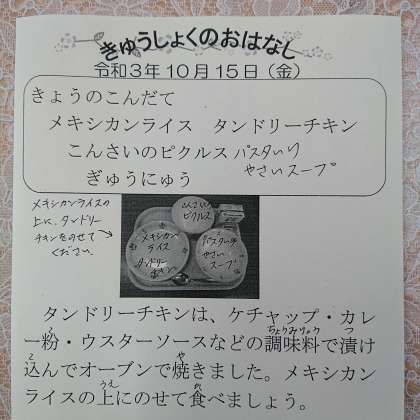 きゅうしょくのおはなし
令和3年10月15日(金)
きょうのこんだて
メキシカンライス タンドリーチキン
こんさいのピクルス パスタいり
やさいスープ
ぎゅうにゅう
メキシカンライスの
上に、タンドリー
チキンをのせて
ください。
こんさい
ピクルス
メキシカン
ライス
タンドリー
チキン
パスタいり
やさい
スープ
タンドリーチキンは、ケチャップ・カレ
ー粉・ウスターソースなどの調味料で漬け
込んでオーブンで焼きました。メキシカン
ライスの上にのせて食べましょう。